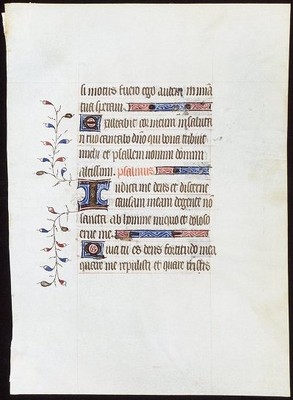 si motus fuero ego autem in mĩa
tua speravi
Exultabit cor meum in saluta
ri tuo cantabo dño qui bona tribuit
michi et psallam nomini domini
altissimi. psalmus
Iudica me deus et discerne
causam meam de gente nō
sancta ab homine iniquo et doloso
erue me
Quia tu es deus fortitudo mea
quare me repulisti et quare tristis